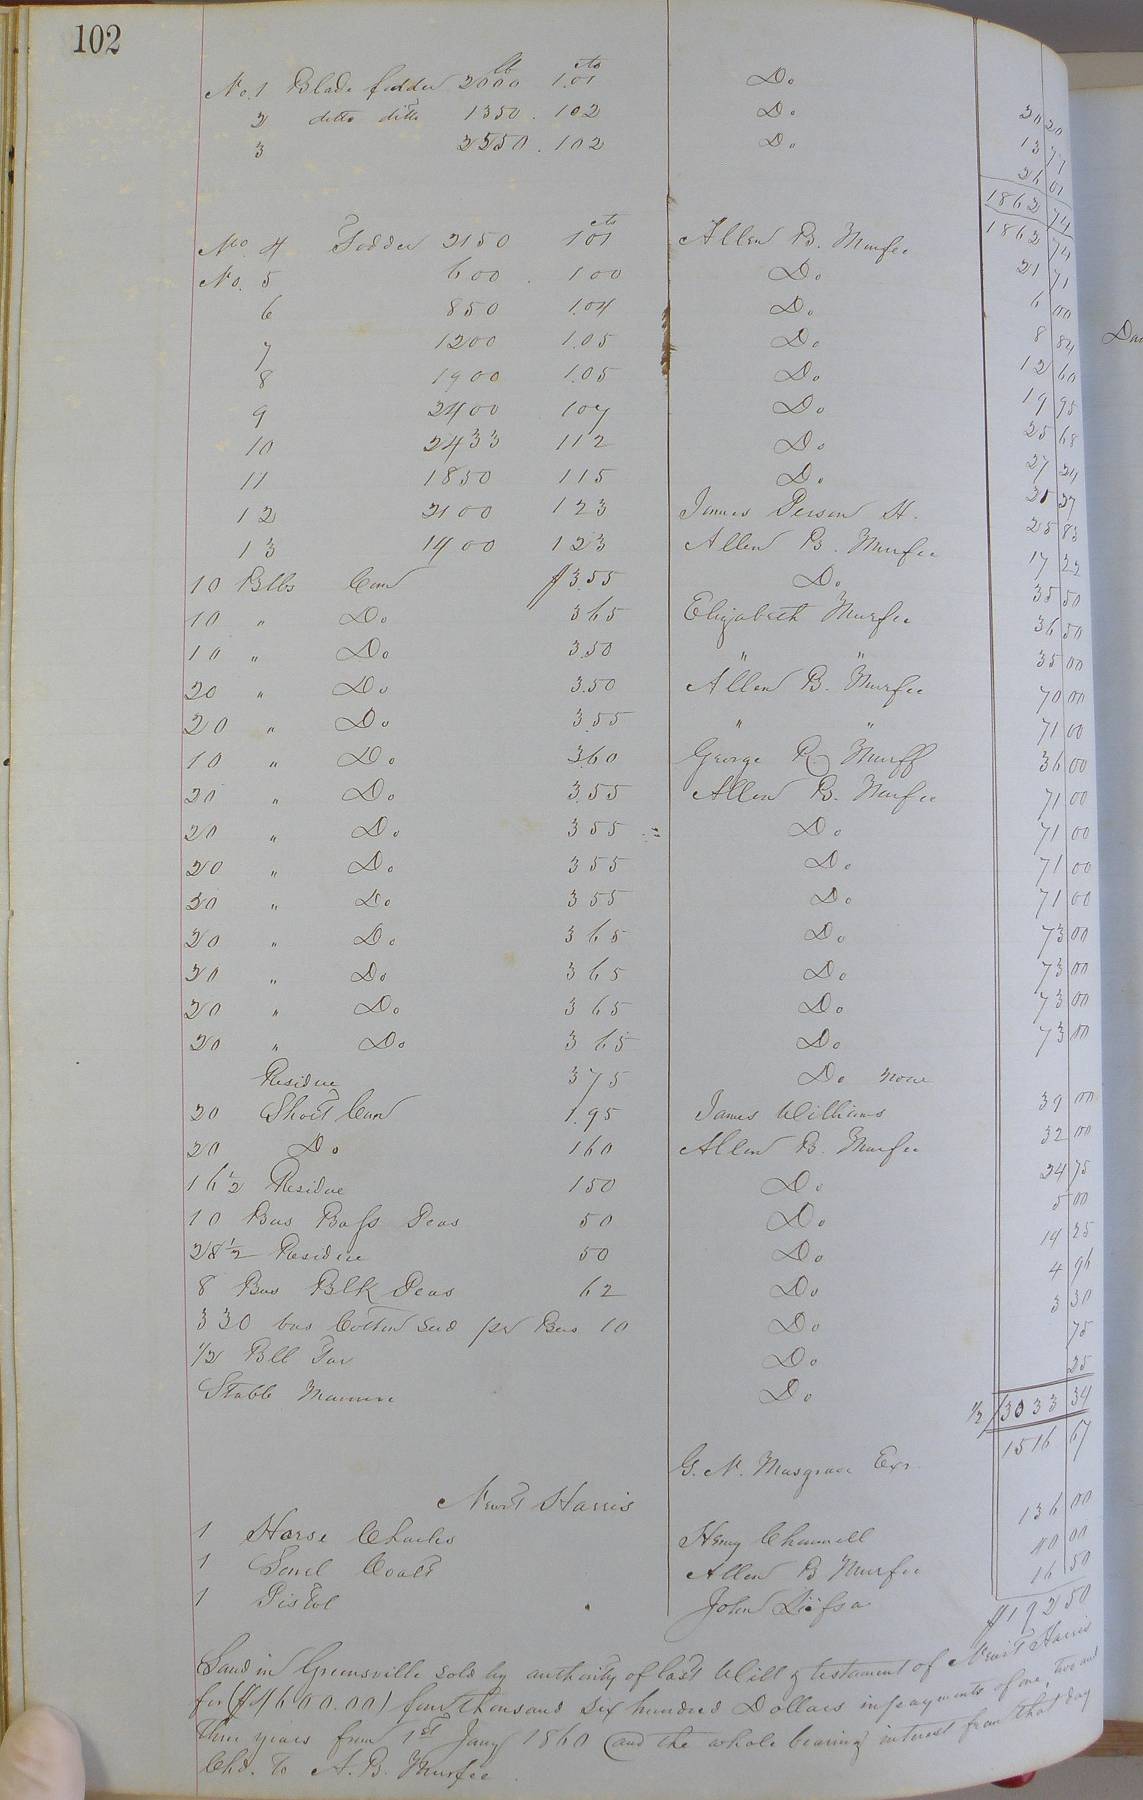 102
No. 1 Blade fodder 2000 lb 1.01 cts Do 20 20
2 ditto ditto 1350 . 102 Do 13 77
3 2550 . 102 Do 26 01
1862 74
1862 74
No. 4 Fodder 2150 101 cts Allen B. Murfee 21 71
No. 5 600 . 100 Do 6 00
6 850 1.04 Do 8 84
7 1200 1.05 Do 12 60
8 1900 1.05 Do 19 95
9 2400 107 Do 25 68
10 2433 112 Do 27 24
11 1850 115 Do 21 27
12 2100 123 James Person H. 25 83
13 1400 123 Allen B. Murfee 17 22
10 Blbs Corn $3.55 Do 35 50
10 " Do 365 Elizabeth Murfee 36 50
10 " Do 3.50 " " 35 00
20 " Do 3.50 Allen B. Murfee 70 00
20 " Do 355 " " 71 00
10 " Do 360 George R. Murff 36 00
20 " Do 3.55 Allen B. Murfee 71 00
20 " Do 355 Do 71 00
20 " Do 355 Do 71 00
20 " Do 355 Do 71 00
20 " Do 365 Do 73 00
20 " Do 365 Do 73 00
20 " Do 365 Do 73 00
20 " Do 365 Do 73 00
Residue 375 Do none
20 Short Corn 1.95 James Williams 39 00
20 Do 160 Allen B. Murfee 32 00
16 1/2 Residue 150 Do 24 75
10 Bus Peas 50 Do 5 00
28 1/2 Residue 50 Do 14 25
8 Bus Blk Peas 62 Do 4 96
330 bus Cotton Seed per Bus 10 Do 3 30
1/2 Bbl Tar Do 75
Stable Manure Do 25
1/2 3033 34
1516 67
G. N. Musgrave Exr.
Newit Harris
1 Horse Charles Henry Chammell 136 00
1 Sorrel Coalt Allen B Murfee 40 00
1 Pistol John 16 50
$192 50
Land in Greensville sold by authority of last Will & testament of Newit Harris
for ($4600.00) four thousand six hundred Dollars in payments of one, two and
three years from 1st Jany 1860 (and the whole bearing interest from that day
Chd. To A. B. Murfee